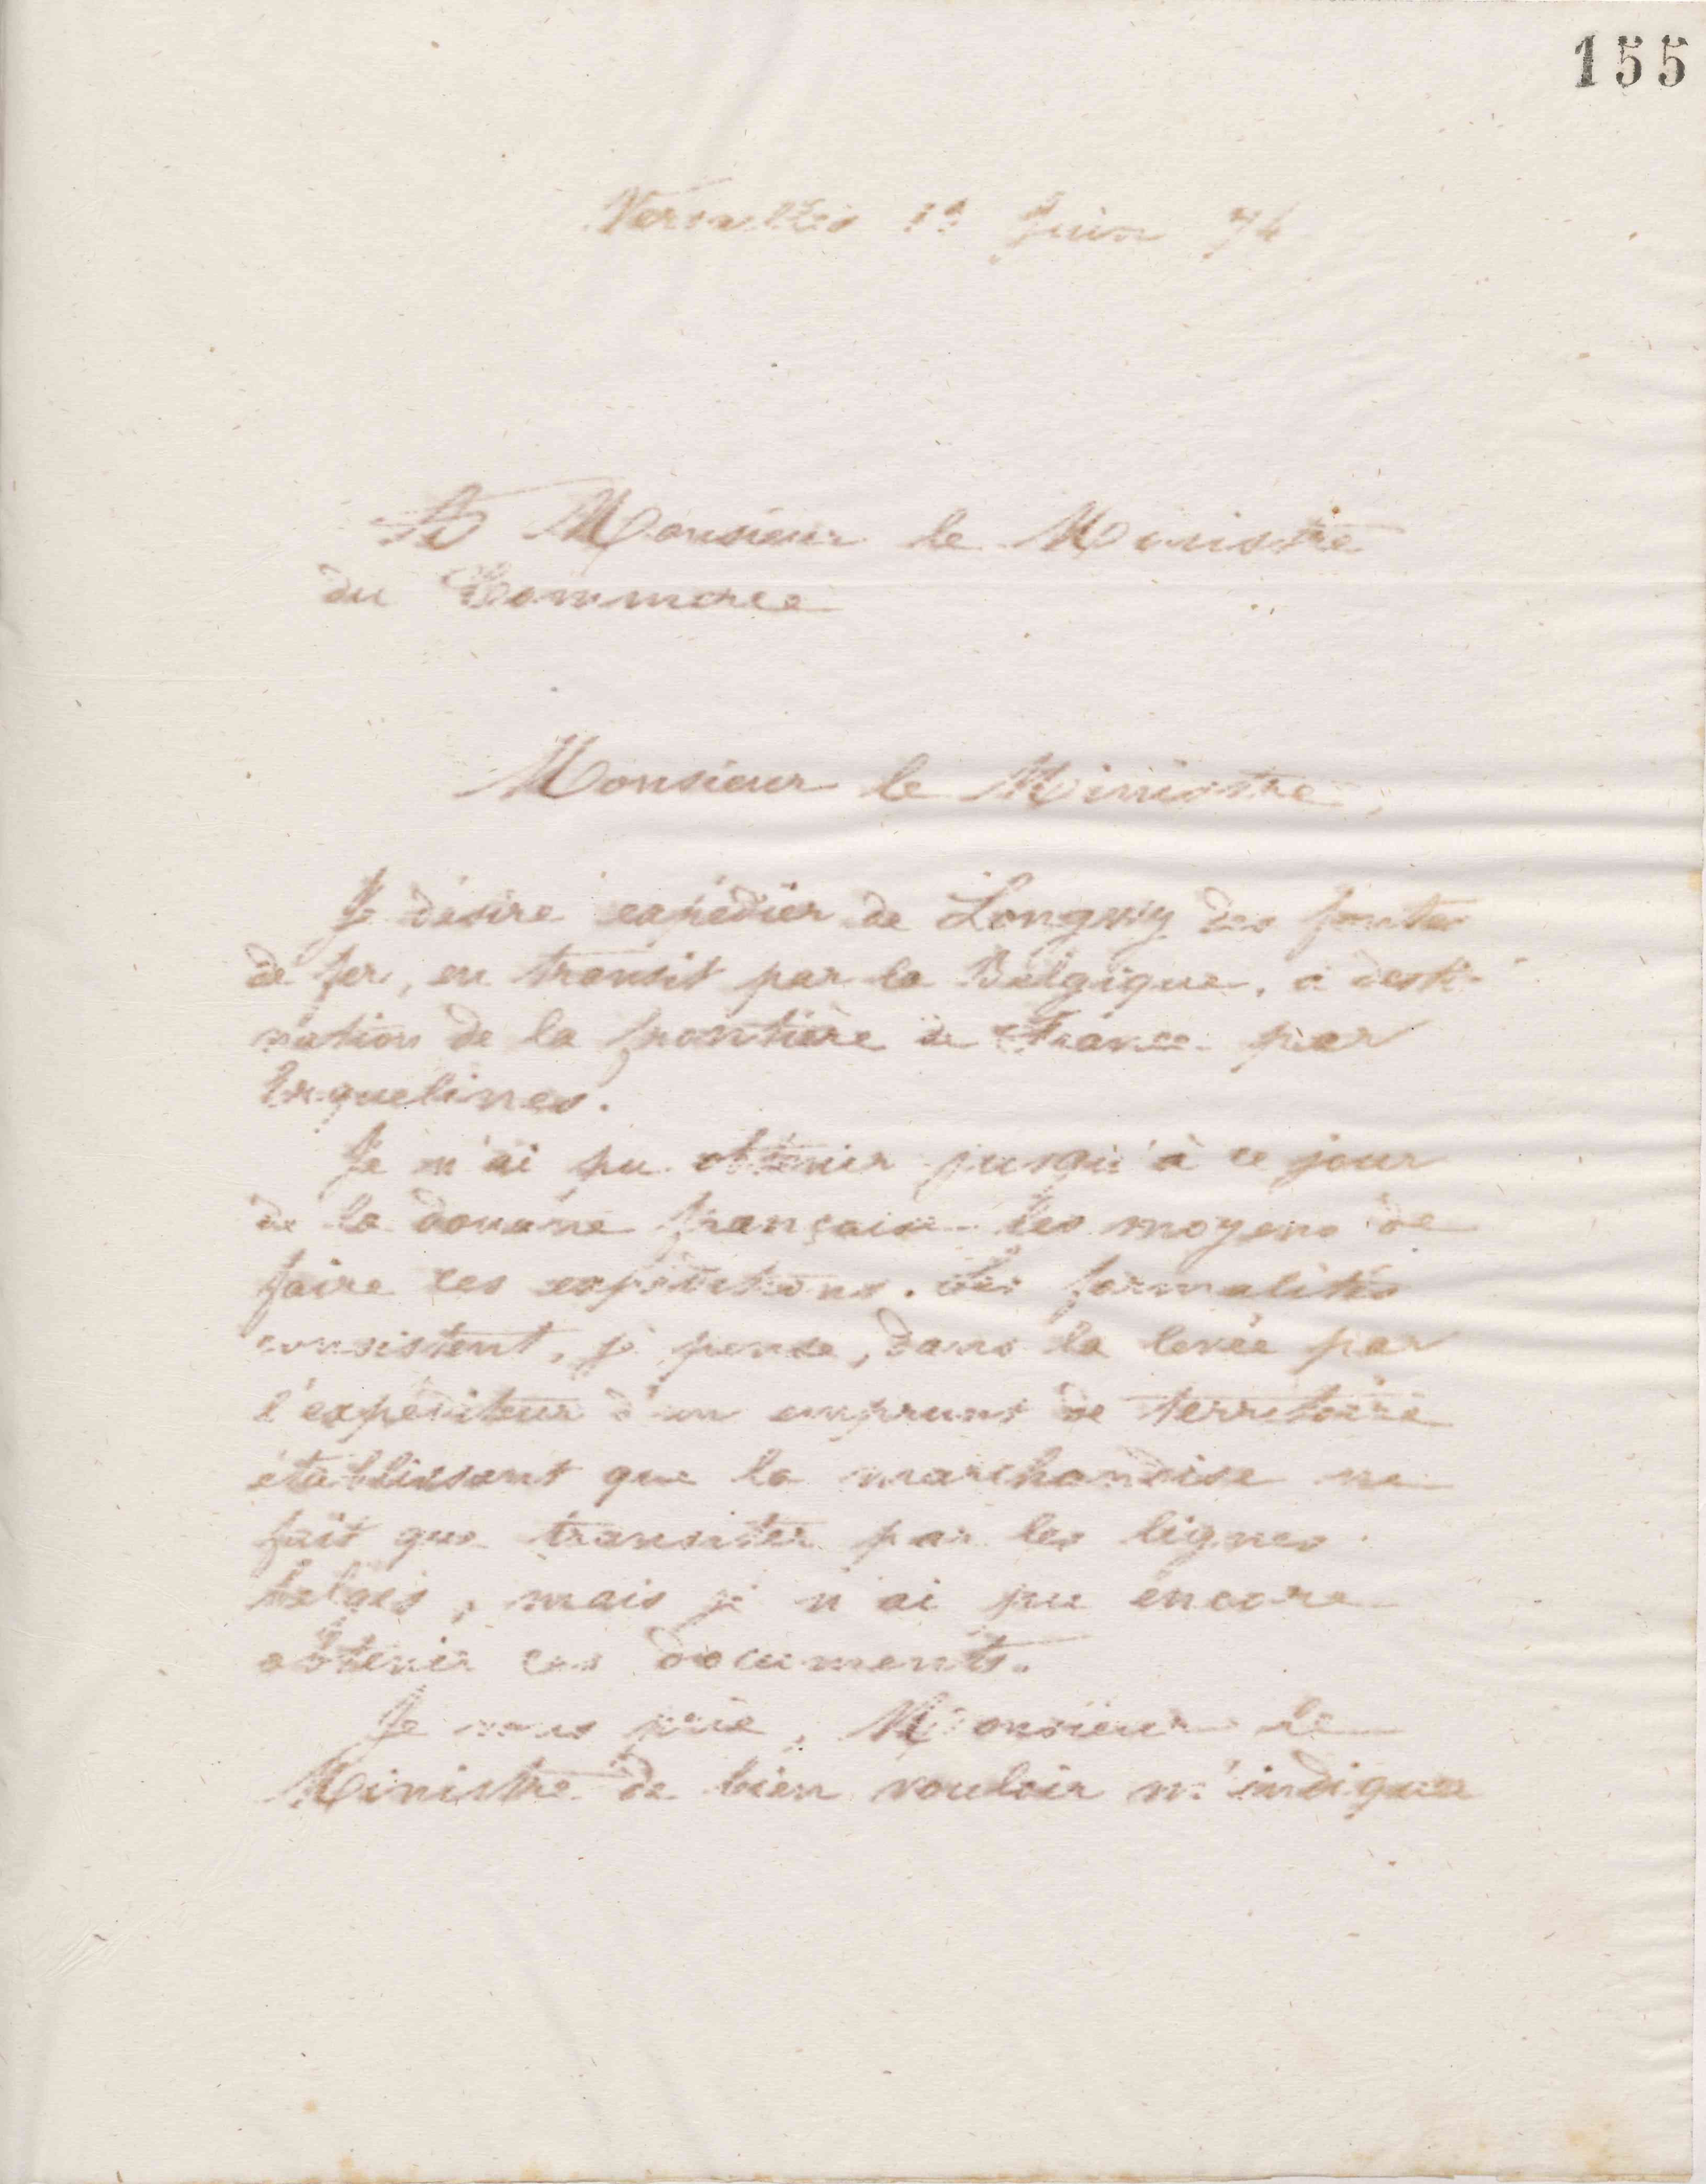 155
Versailles Juin 74
A Monsieur le Ministre
du Commerce
Monsieur le Ministre,
Je désire expédier de Longwy des fontes
de fer, en transit par la Belgique, à desti-
nation de la frontière de France par
Erquelines.
Je n'ai pu obtenir jusqu'à ce jour
de la douane française les moyens de
faire ces expéditions. Les formalités
consistent, je pense, dans la levée par
l'expéditeur d'un emprunt de territoire
établissant que la marchandise ne
fait que transiter par les lignes
belges, mais je n'ai pu encore
obtenir ces documents.
Je vous prie, Monsieur le
Ministre de bien vouloir m'indiquer